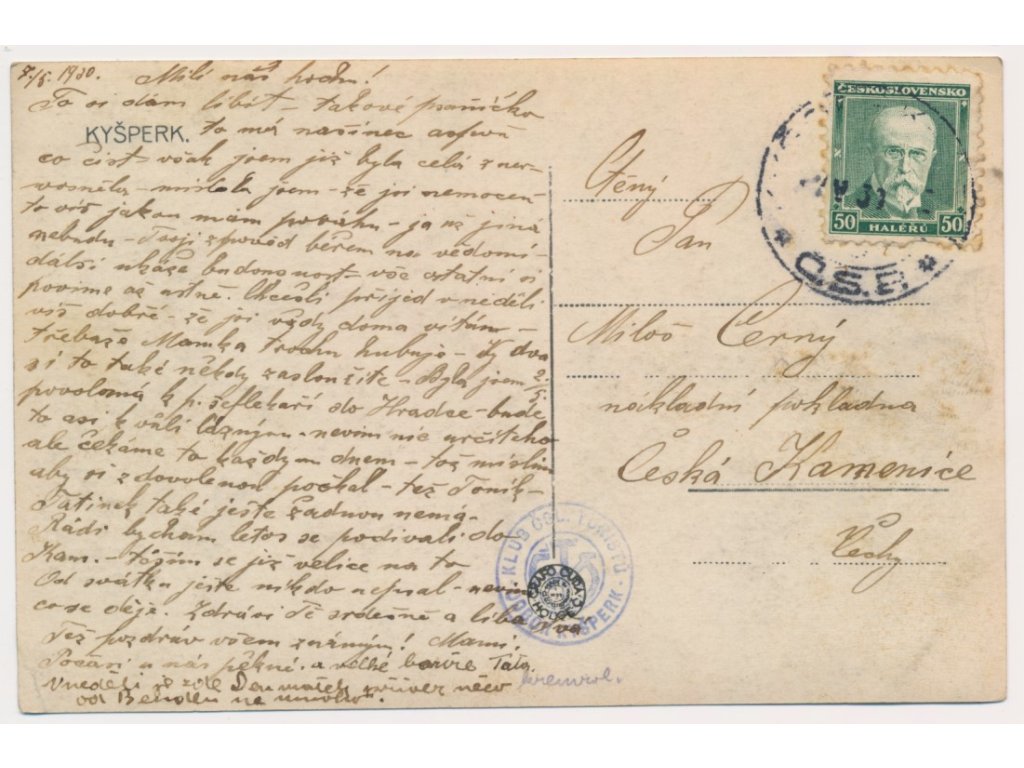 7/5. 1930. Milí náš hochu!
To si dám líbit - takové psaníčko
KYŠPERK.
to má našinec aspoň
co číst - však jsem již byla celá zner-
vosněla - myslela jsem - že jsi nemocen -
to víš jakou mám povahu - já už jiná
nebudu - Tvoji zpověď béřem na vědomí -
další ukáže budoucnost - vše ostatní si
povíme až ustně. Chceš-li přijeď v neděli
víš dobře - že jsi vždy doma vítán -
třebaže Mamka trochu hubuje - Vy dva
si to také někdy zasloužíte - Byla jsem 2./5.
povolaná k p. šéflékaři do Hradce - bude
to asi k vůli lázným - nevím nic určitého
ale čekáme to každým dnem - tož myslím
aby si z dovolenou počkal - též Toník -
Tatínek také ještě žádnou nemá -
Rádi bychom letos se podívali do
Kam. - těším se již velice na to
Od svátku ještě nikdo nepsal - nevím
co se děje. Zdraví Tě srdečně a líbá Tvá
Též pozdrav všem známým! Mami.
Počasí u nás pěkné a velké bouře Táta.
V neděli je zde
od na
ČESKOSLOVENSKO
50 HALÉŘŮ 50
Č.S.P.
Ctěný
Pan
Miloš Černý
nákladní pokladna
Česká Kamenice
Čechy
KLUB ČSL. TURISTŮ
ODBOR KYŠPERK